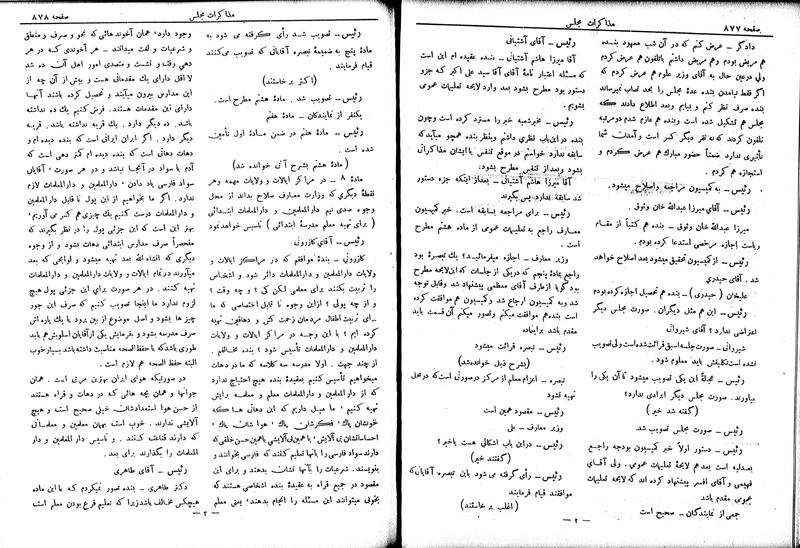 صفحه ۸۷۷
مذاکرات مجلس
دادگر ـ عرض کنم که در آن شب معهود بنده
هم مریض بودم وهم مریض داشتم باتلفون هم عرض کردم
ولی درعین حال به آقای وزیر علوم هم عرض کردم که
اگر فقط نیامدن بنده عدهٔ مجلس را بحد نصاب نمیرساند
بنده صرف نظر کنم و بیایم وبعد اطلاع دادند که
مجلس هم تشکیل شده است وبنده هم عازم شدم ودومرتبه
تلفون کردند که نه نظر دیگر کسر است وآمدن شما
تأثیری ندارد ضمناً حضور مبارك هم عرض کردم و
استجازه هم کردم
رئیس ـ به کمیسیون مراجعه واصلاح میشود.
رئیس ـ آقای میرزا عبدالله خان وثوق .
میرزا عبدالله خان وثوق ـ بنده هم کتباً از مقام
ریاست اجازه مرخصی استدعا کرده بودم .
رئیس ـ ازکمیسیون تحقیق میشود بعد اصلاح خواهد
شد. آقای حیدری
علیخان ( حیدری ) ـ بنده هم تحصیل اجازه کرده بودم
رئیس ـ این هم مثل دیگران . صورت مجلس دیگر
اعتراضی ندارد؟ آقای شیروانی
شیروانی ـ صورت جلسه اسبق قرائت شده است ولی تصویب
نشده است تکلیفش باید معلوم شود.
رئیس ـ عجالة این یکی تصویب میشود تا آن یکی را
بیاورند. صورت مجلس دیگر ایرادی ندارد؟
( گفته شد خیر )
رئیس ـ صورت مجلس تصویب شد
رئیس ـ دستور اولاً خبر کمیسیون بودجه راجع
بعدلیه است بعد هم لایحهٔ تعلیمات عمومی. ولی آقای
فهیمی و آقای افسر پیشنهاد کرده اند که لایحهٔ تعلیمات
عمومی مقدم باشد
جمعی از نمایندگان ـ صحیح است
رئیس ـ آقای آشتیانی
آقا میرزا هاشم آشتیانی ـ بنده عقیده ام این است
که مسئله اعتبار نامهٔ آقای آقا سید علی اکبر که جزو
دستور بود مطرح بشود بعد وارد لایحه تعلیمات عمومی
بشویم .
رئیس ـ مخبر شعبه خبر را مسترد کرده است وچون
بنده در این باب نظری داشتم وبنظر بنده همچو میآید که
سابقه ندارد خواستم در موقع تنفس با ایشان مذاکراتی
بشود وبعد از تنفس مطرح بشود:
آقا میرزا هاشم آشتیانی ـ بعد از اینکه جزء دستور
شد سابقه ندارد پس بگیرند
رئیس ـ برای مراجعه بسابقه است . خبر کمیسیون
معارف راجع به تعلیمات عمومی از ماده هشتم مطرح
است .
وزیر معارف ـ اجازه میفرمائید؟ یك تبصرهٔ بود
راجع بمادهٔ پنجم که در یکی از جلسات که این لایحه مطرح
بود گویا از طرف آقای معظمی پیشنهاد شد وقابل توجه
شد وبه کمیسیون ارجاع شد وکمیسیون هم موافقت کرده
است بنده هم موافقت میکنم وتصور میکنم آن قسمت باید
مقدم باشد بر این ماده
رئیس ـ تبصره قرائت میشود
( بشرح ذیل خوانده شد )
تبصره ـ اعزام معلم از مرکز در صورتی است که در محل
تهیه نشود
رئیس ـ مقصود همین است
وزیر معارف ـ بلی
رئیس ـ در این باب اشکالی هست یا خیر؟
( گفتند خیر )
رئیس ـ رأی گرفته می شود باین تبصره. آقایانی که
موافقند قیام فرمایند
( اغلب برخاستند )
ـ ۲ ـ
مذاکرات مجلس
صفحه ۸۷۸
رئیس ـ تصویب شد. رأی گرفته می شود به
مادهٔ پنج به ضمیمهٔ تبصره آقایانی که تصویب می کنند
قیام فرمایند
( اکثر برخاستند )
رئیس ـ تصویب شد . مادهٔ هشتم مطرح است.
یکنفر از نمایندگان ـ مادهٔ هفتم
رئیس ـ مادهٔ هفتم در ضمن مادهٔ اول تأمین
شده است .
( مادهٔ هشتم بشرح آتی خوانده شد )
مادهٔ ۸ ـ در مراکز ایالات و ولایات مهمه وهر
نقطهٔ دیگری که وزارت معارف صلاح بداند از محل
وجوه صدی نیم دارالمعلمین و دارالمعلمات ابتدائی
( برای تهیه معلم مدرسهٔ ابتدائی ) تأسیس خواهد نمود
رئیس ـ آقای کازرونی
کازرونی ـ بنده موافقم که در مراکز ایالات و
ولایات دارالمعلمین و دارالمعلمات دائر شود و اشخاص
را تربیت بکنند برای معلمی لکن کی؟ و چه وقت ؟
و از چه پولی ؟ از این وجوه نا قابل اختصاصی که ما
برای تربیت اطفال مردمان زحمت کش و دهاقین تهیه
کرده ایم ؟ با این وجه در مراکز ایالات و ولایات
دارالمعلمین و دارالمعلمات تأسیس شود ؟ بنده مخالفم .
از چند جهت . اولاً مدرسه سه کلاسه که ما در دهات
میخواهیم تأسیس کنیم بعقیدهٔ بنده هیچ احتیاج ندارد
که از دارالمعلمین و دارالمعلمات معلم و معلمه برایش
تهیه کنیم ؛ ما میل داریم که این دهاتی ها که
خونشان پاك ؛ فکرشان پاك ؛ هوا شان پاك ؛
احساساتشان بی آلایش ؛ با همین بی آلایشی با همین حسن خلقی که
دارند سواد فارسی را بآنها تعلیم کنند که فارسی بخوانند و
بنویسند. شرعیات را بآنها نشان بدهند و برای این
مقصود در جمیع قراء به عقیدهٔ بنده اشخاصی هستند که
بخوبی میتوانند این مسئله را انجام بدهند ؛ یعنی معلم
وجود دارد؛ همان آخوند هائی که نحو و صرف و منطق
و شرعیات و لغت میدانند ـ هر آخوندی که در هر
دهی رفت و نشست و متصدی امور اهل آن ده شد
لا اقل دارای یك مقدماتی هست و بیش از آن چه از
این مدارس بیرون میآیند و تحصیل کرده باشند آنها
دارای این مقدمات هستند. فرض کنیم یك ده نداشته
باشد. ده دیگر دارد . یك قریه نداشته باشد. قریه
دیگر دارد . اگر ایران ایرانی است که بنده دیده ام و
دهات دهاتی است که بنده دیده ام کمتر دهی است که
آدم با سواد در آنجا نباشد و در هر صورت؛ آقایان
سواد فارسی یاد دادن؛ دارالمعلمین و دارالمعلمات لازم
ندارد . اگر ما بخواهیم از این پول نا قابل دارالمعلمین
و دارالمعلمات درست کنیم یك چیزی هم کسر می آوریم؛
بهتر این است که این جزئی پول را در نظر بگیرند که
منحصراً صرف مدارس ابتدائی دهات بشود و از وجوه
دیگری که انشاء الله بعد تهیه میشود و لوایحی که بعد
میآورند درتمام ایالات و ولایات دارالمعلمین و دارالمعلمات
تهیه کنند . در هر صورت برای این جزئی پول هیچ
لزوم ندارد ما اینجا تصویب کنیم که صرف این جور
چیز ها بشود و اصل موضوع از بین برود یا یك پاره اش
صرف مدرسه بشود و بفرمایش یکی ازآقایان اسلوبش هم باید
طوری باشد که با حفظ الصحه مناسبت داشته باشد بسیار خوب
البته حفظ الصحه هم لازم است .
در صورتیکه هوای ایران بهترین مربی است . همان
جوانها و همان بچه هائی که در دهات و قراء هستند
از حسن هوا استعدادشان خیلی صحیح است و هیچ
آلایشی ندارند . خوب است بهمان معلمین و معلماتی
که دارند قناعت کنند. و تأسیس دارالمعلمین و دار
المعلمات را بگذارند برای بعد.
رئیس ـ آقای طاهری
دکتر طاهری ـ بنده تصور نمیکردم که با این ماده
هیچکس مخالف باشد زیرا که تعلیم فرع بودن معلم است
ـ ۲ ـ